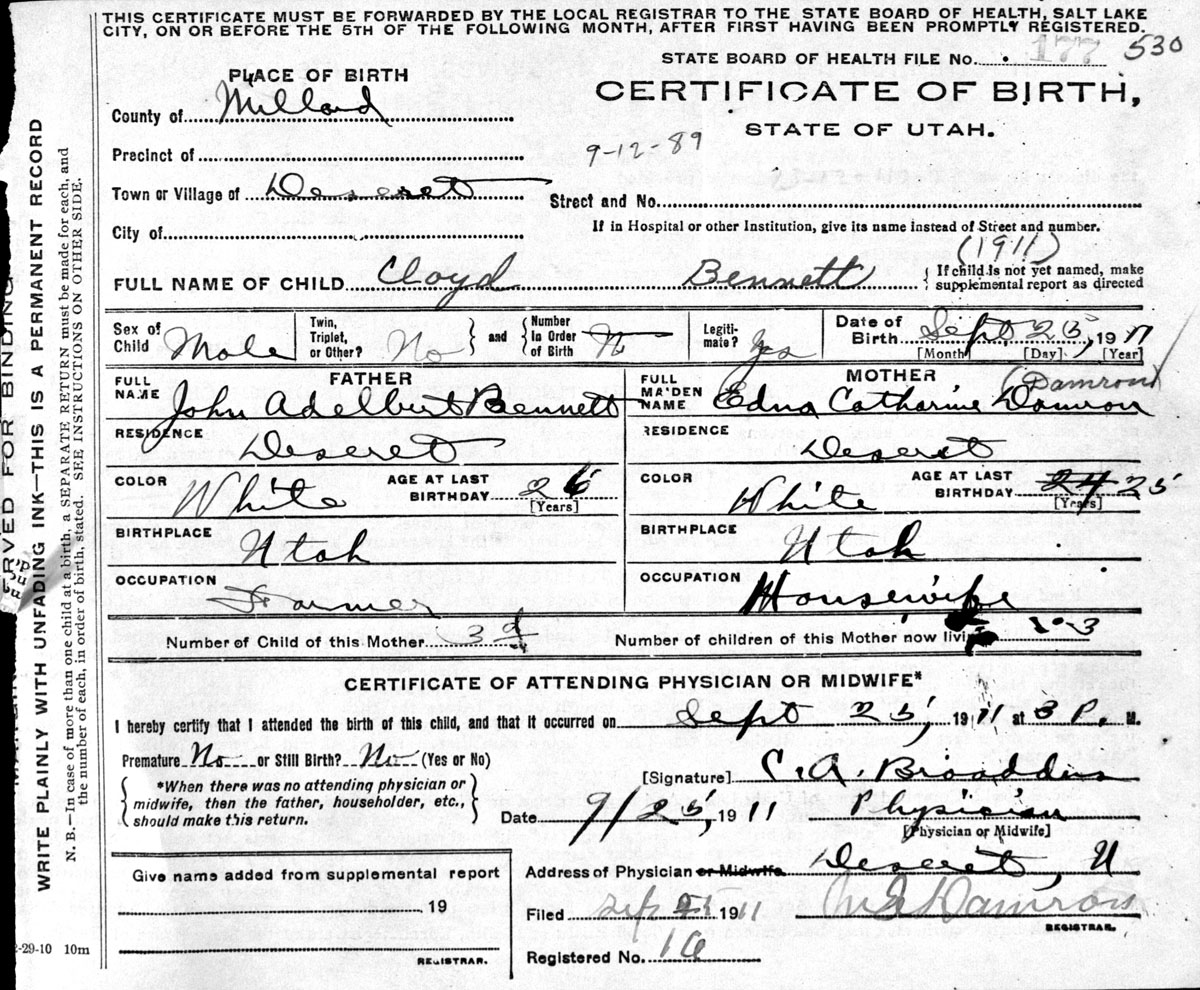 THIS CERTIFICATE MUST BE FORWARDED BY THE LOCAL REGISTRAR TO THE STATE BOARD OF HEALTH, SALT LAKE
CITY, ON OR BEFORE THE 5TH OF THE FOLLOWING MONTH, AFTER FIRST HAVING BEEN PROMPTLY REGISTERED.
STATE BOARD OF HEALTH FILE No. 177 530
PLACE OF BIRTH
CERTIFICATE OF BIRTH,
County of Millard
STATE OF UTAH.
9-12-89
Precinct of
Town or Village of Deseret
Street and No.
City of
If in Hospital or other Institution, give its name instead of Street and number.
(1911)
FULL NAME OF CHILD Cloyd Bennett { If child is not yet named, make
supplemental report as directed
Sex of Child Male
Twin, Triplet, or Other? No } and { Number In Order of Birth
Legiti-mate? Yes
Date of Birth Sept 25, 1911
[Month] [Day] [Year]
FATHER
FULL NAME John Adelbert Bennett
MOTHER (Damron)
FULL MAIDEN NAME Edna Catharine Damron
RESIDENCE Deseret
RESIDENCE Deseret
COLOR White AGE AT LAST BIRTHDAY 26 [Years]
COLOR White AGE AT LAST BIRTHDAY 24 25 [Years]
BIRTHPLACE Utah
BIRTHPLACE Utah
OCCUPATION Farmer
OCCUPATION Housewife
Number of Child of this Mother 3d
Number of children of this Mother now living 3
CERTIFICATE OF ATTENDING PHYSICIAN OR MIDWIFE*
I hereby certify that I attended the birth of this child, and that it occurred on Sept 25, 1911 at 3 P. M.
Premature No or Still Birth? No (Yes or No)
*When there was no attending physician or
midwife, then the father, householder, etc.,
should make this return.
[Signature] C. A. Broaddus
Date 9/25, 1911 Physician
[Physician or Midwife]
Address of Physician or Midwife Deseret, U
Give name added from supplemental report
, 19
REGISTRAR.
Filed Sep 1911 Damron
REGISTRAR.
Registered No. 16
2-29-10 10m
RVED FOR BINDING
WRITE PLAINLY WITH UNFADING INK—THIS IS A PERMANENT RECORD
N. B.—In case of more than one child at a birth, a SEPARATE RETURN must be made for each, and
the number of each, in order of birth, stated. SEE INSTRUCTIONS ON OTHER SIDE.